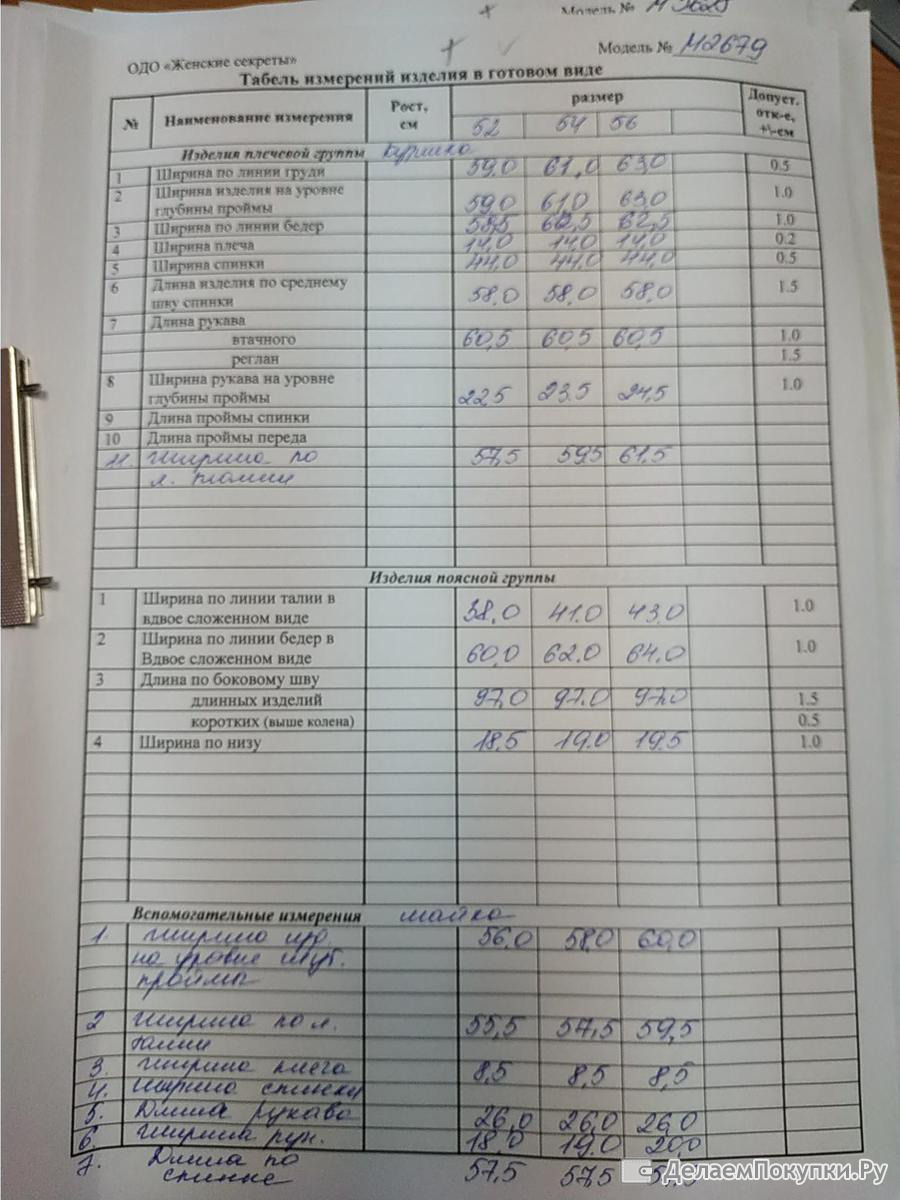 Модель №
ОДО «Женские секреты»
Модель № М2679
Табель измерений изделия в готовом виде
№ Наименование измерения Рост, см размер Допуст. отк-е, +\-см
52 54 56
Изделия плечевой группы куртка
1 Ширина по линии груди 59,0 61,0 63,0 0.5
2 Ширина изделия на уровне
глубины проймы 59,0 61,0 63,0 1.0
3 Ширина по линии бедер 62,5 1.0
4 Ширина плеча 14,0 14,0 14,0 0.2
5 Ширина спинки 44,0 44,0 44,0 0.5
6 Длина изделия по среднему
шву спинки 58,0 58,0 58,0 1.5
7 Длина рукава
втачного 60,5 60,5 60,5 1.0
реглан 1.5
8 Ширина рукава на уровне
глубины проймы 22,5 23.5 24,5 1.0
9 Длина проймы спинки
10 Длина проймы переда
11. Ширина по 57,5 59,5 61,5
л. талии
Изделия поясной группы
1 Ширина по линии талии в
вдвое сложенном виде 41.0 43,0 1.0
2 Ширина по линии бедер в
Вдвое сложенном виде 60,0 62.0 64.0 1.0
3 Длина по боковому шву
длинных изделий 97,0 97.0 97,0 1.5
коротких (выше колена) 0.5
4 Ширина по низу 18,5 19.0 19.5 1.0
Вспомогательные измерения майка
1. Ширина изд. 56,0 58,0 60,0
на уровне глуб.
проймы
2 Ширина по л. 55,5 57,5 59,5
талии
3. Ширина плеча 8,5 8,5 8,5
4. Ширина спинки
5. Длина рукава 26,0 26,0 26,0
6. Ширина рук. 18,0 19,0 20,0
7. Длина по 57,5 57,5
спинке
ДелаемПокупки.Ру